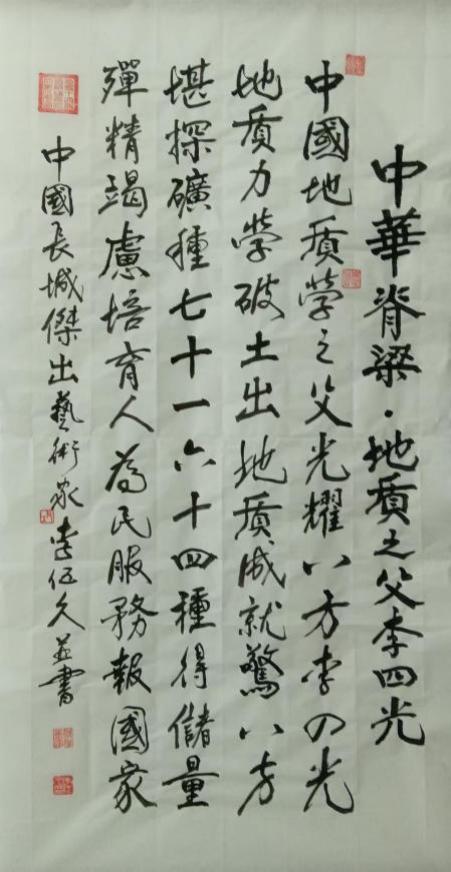 中華脊梁·地质之父李四光
中國地质學之父光耀八方李四光
地质力學破土出地质成就驚八方
堪探礦種七十一六十四種得儲量
殫精竭慮培育人為民服務報國家
中國長城傑出藝術家李伍久並書